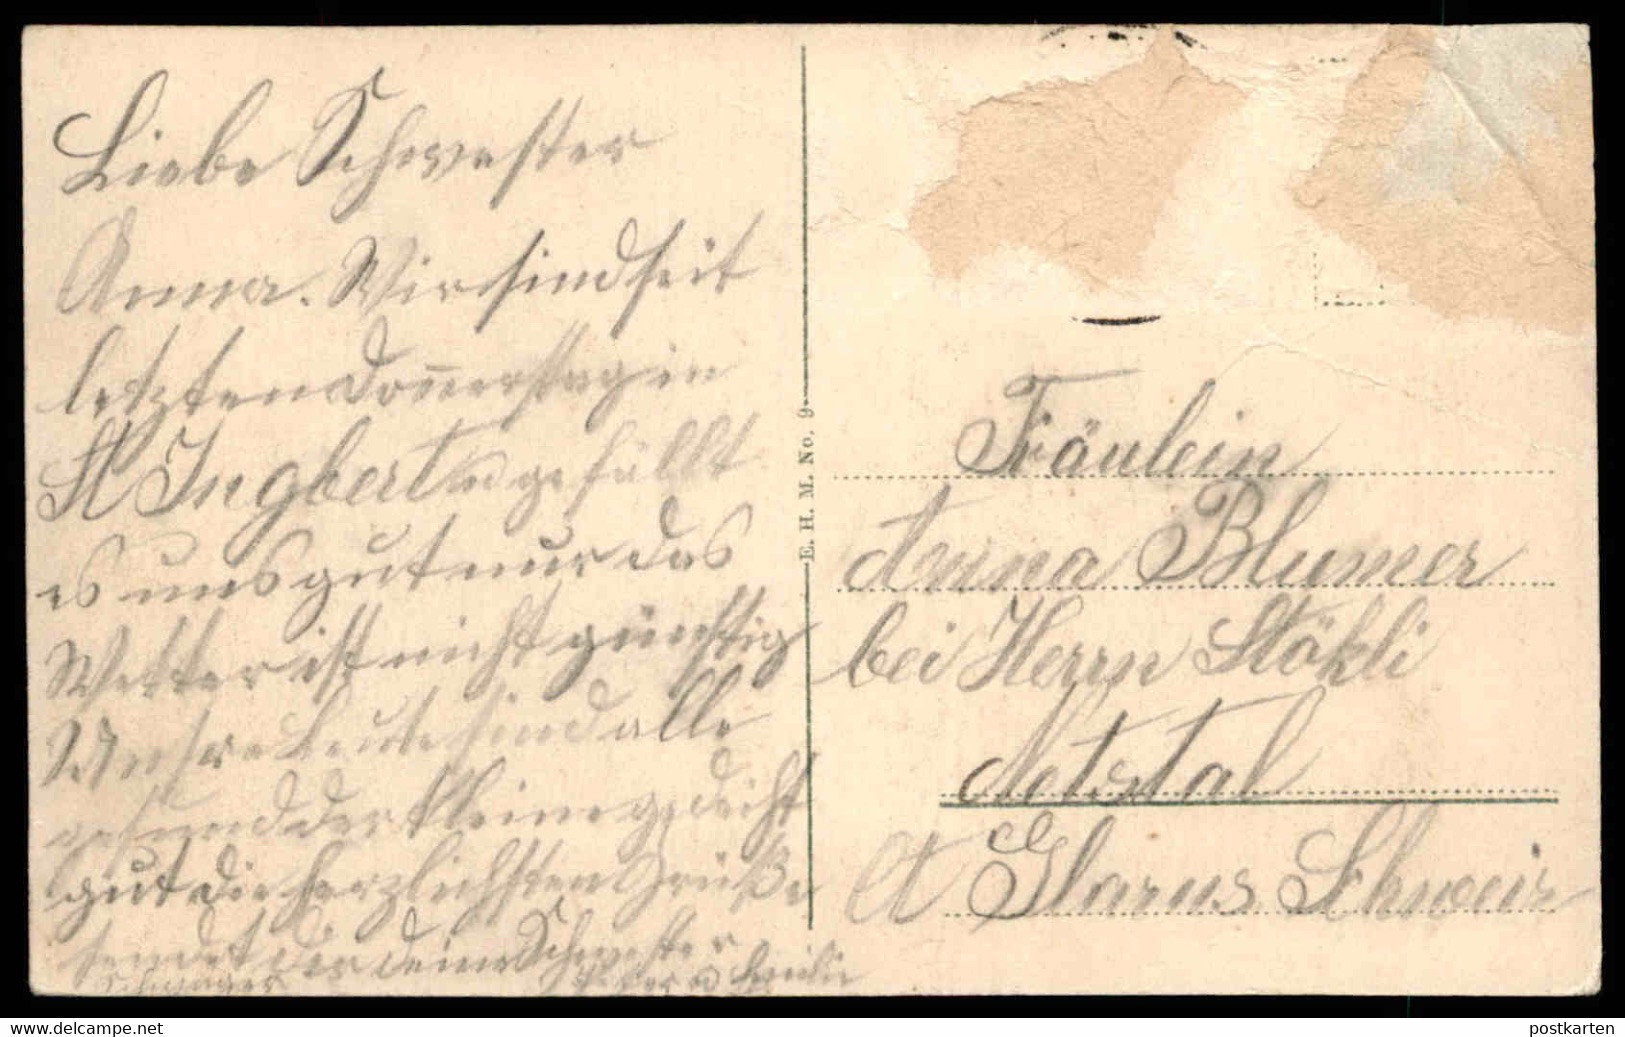 Liebe Schwester
Anna. Wir sind seit
letzten Donnerstag in
St Ingbert u gefällt
es uns gut nur das
Wetter ist nicht günstig
Unsre Leute sind alle
gesund der kleine gedeiht
gut die herzlichsten Grüße
sendet dir deine Schwester
Schwager Peter u Emilie
E. H. M. No. 9
Fräulein
Anna Blumer
bei Herrn Stökli
Netstal
Ct Glarus Schweiz
www.delcampe.net
postkarten